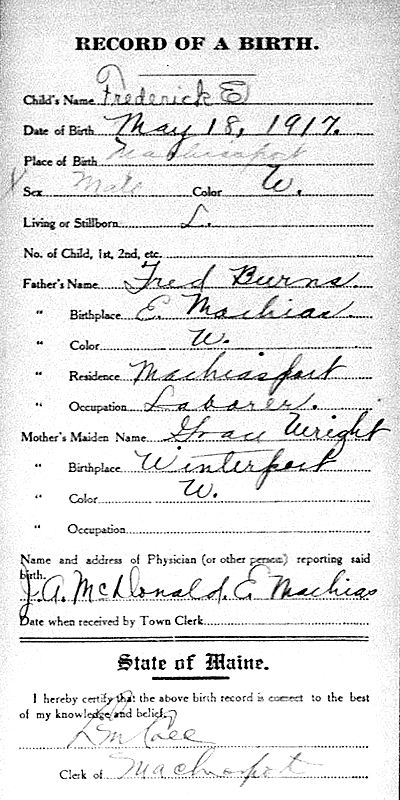 RECORD OF A BIRTH.
Child's Name Frederick E
Date of Birth May 18, 1917.
Place of Birth Machiasport
Sex Male Color W.
Living or Stillborn L.
No. of Child, 1st, 2nd, etc.
Father's Name Fred Burns.
" Birthplace E. Machias.
" Color W.
" Residence Machiasport
" Occupation Laborer.
Mother's Maiden Name Grace Wright
" Birthplace Winterport
" Color W.
" Occupation
Name and address of Physician (or other person) reporting said
birth.
J.A. McDonald. E. Machias
Date when received by Town Clerk
State of Maine.
I hereby certify that the above birth record is correct to the best
of my knowledge and belief.
Clerk of Machiasport